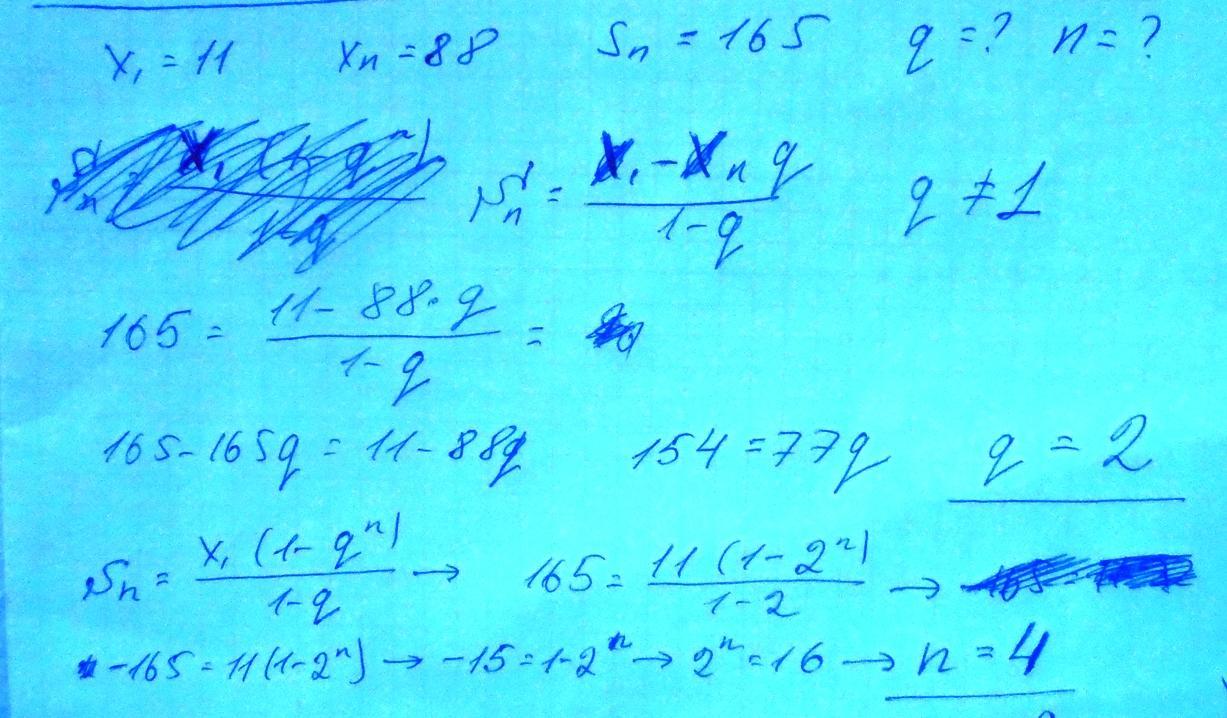 x₁ = 11 xₙ = 88 Sₙ = 165 q = ? n = ?
Sₙ = (x₁ - xₙ q) / (1 - q) q ≠ 1
165 = (11 - 88·q) / (1 - q) =
165 - 165q = 11 - 88q 154 = 77q q = 2
Sₙ = x₁ (1 - qⁿ) / (1 - q) → 165 = 11 (1 - 2ⁿ) / (1 - 2) →
-165 = 11(1 - 2ⁿ) → -15 = 1 - 2ⁿ → 2ⁿ = 16 → n = 4